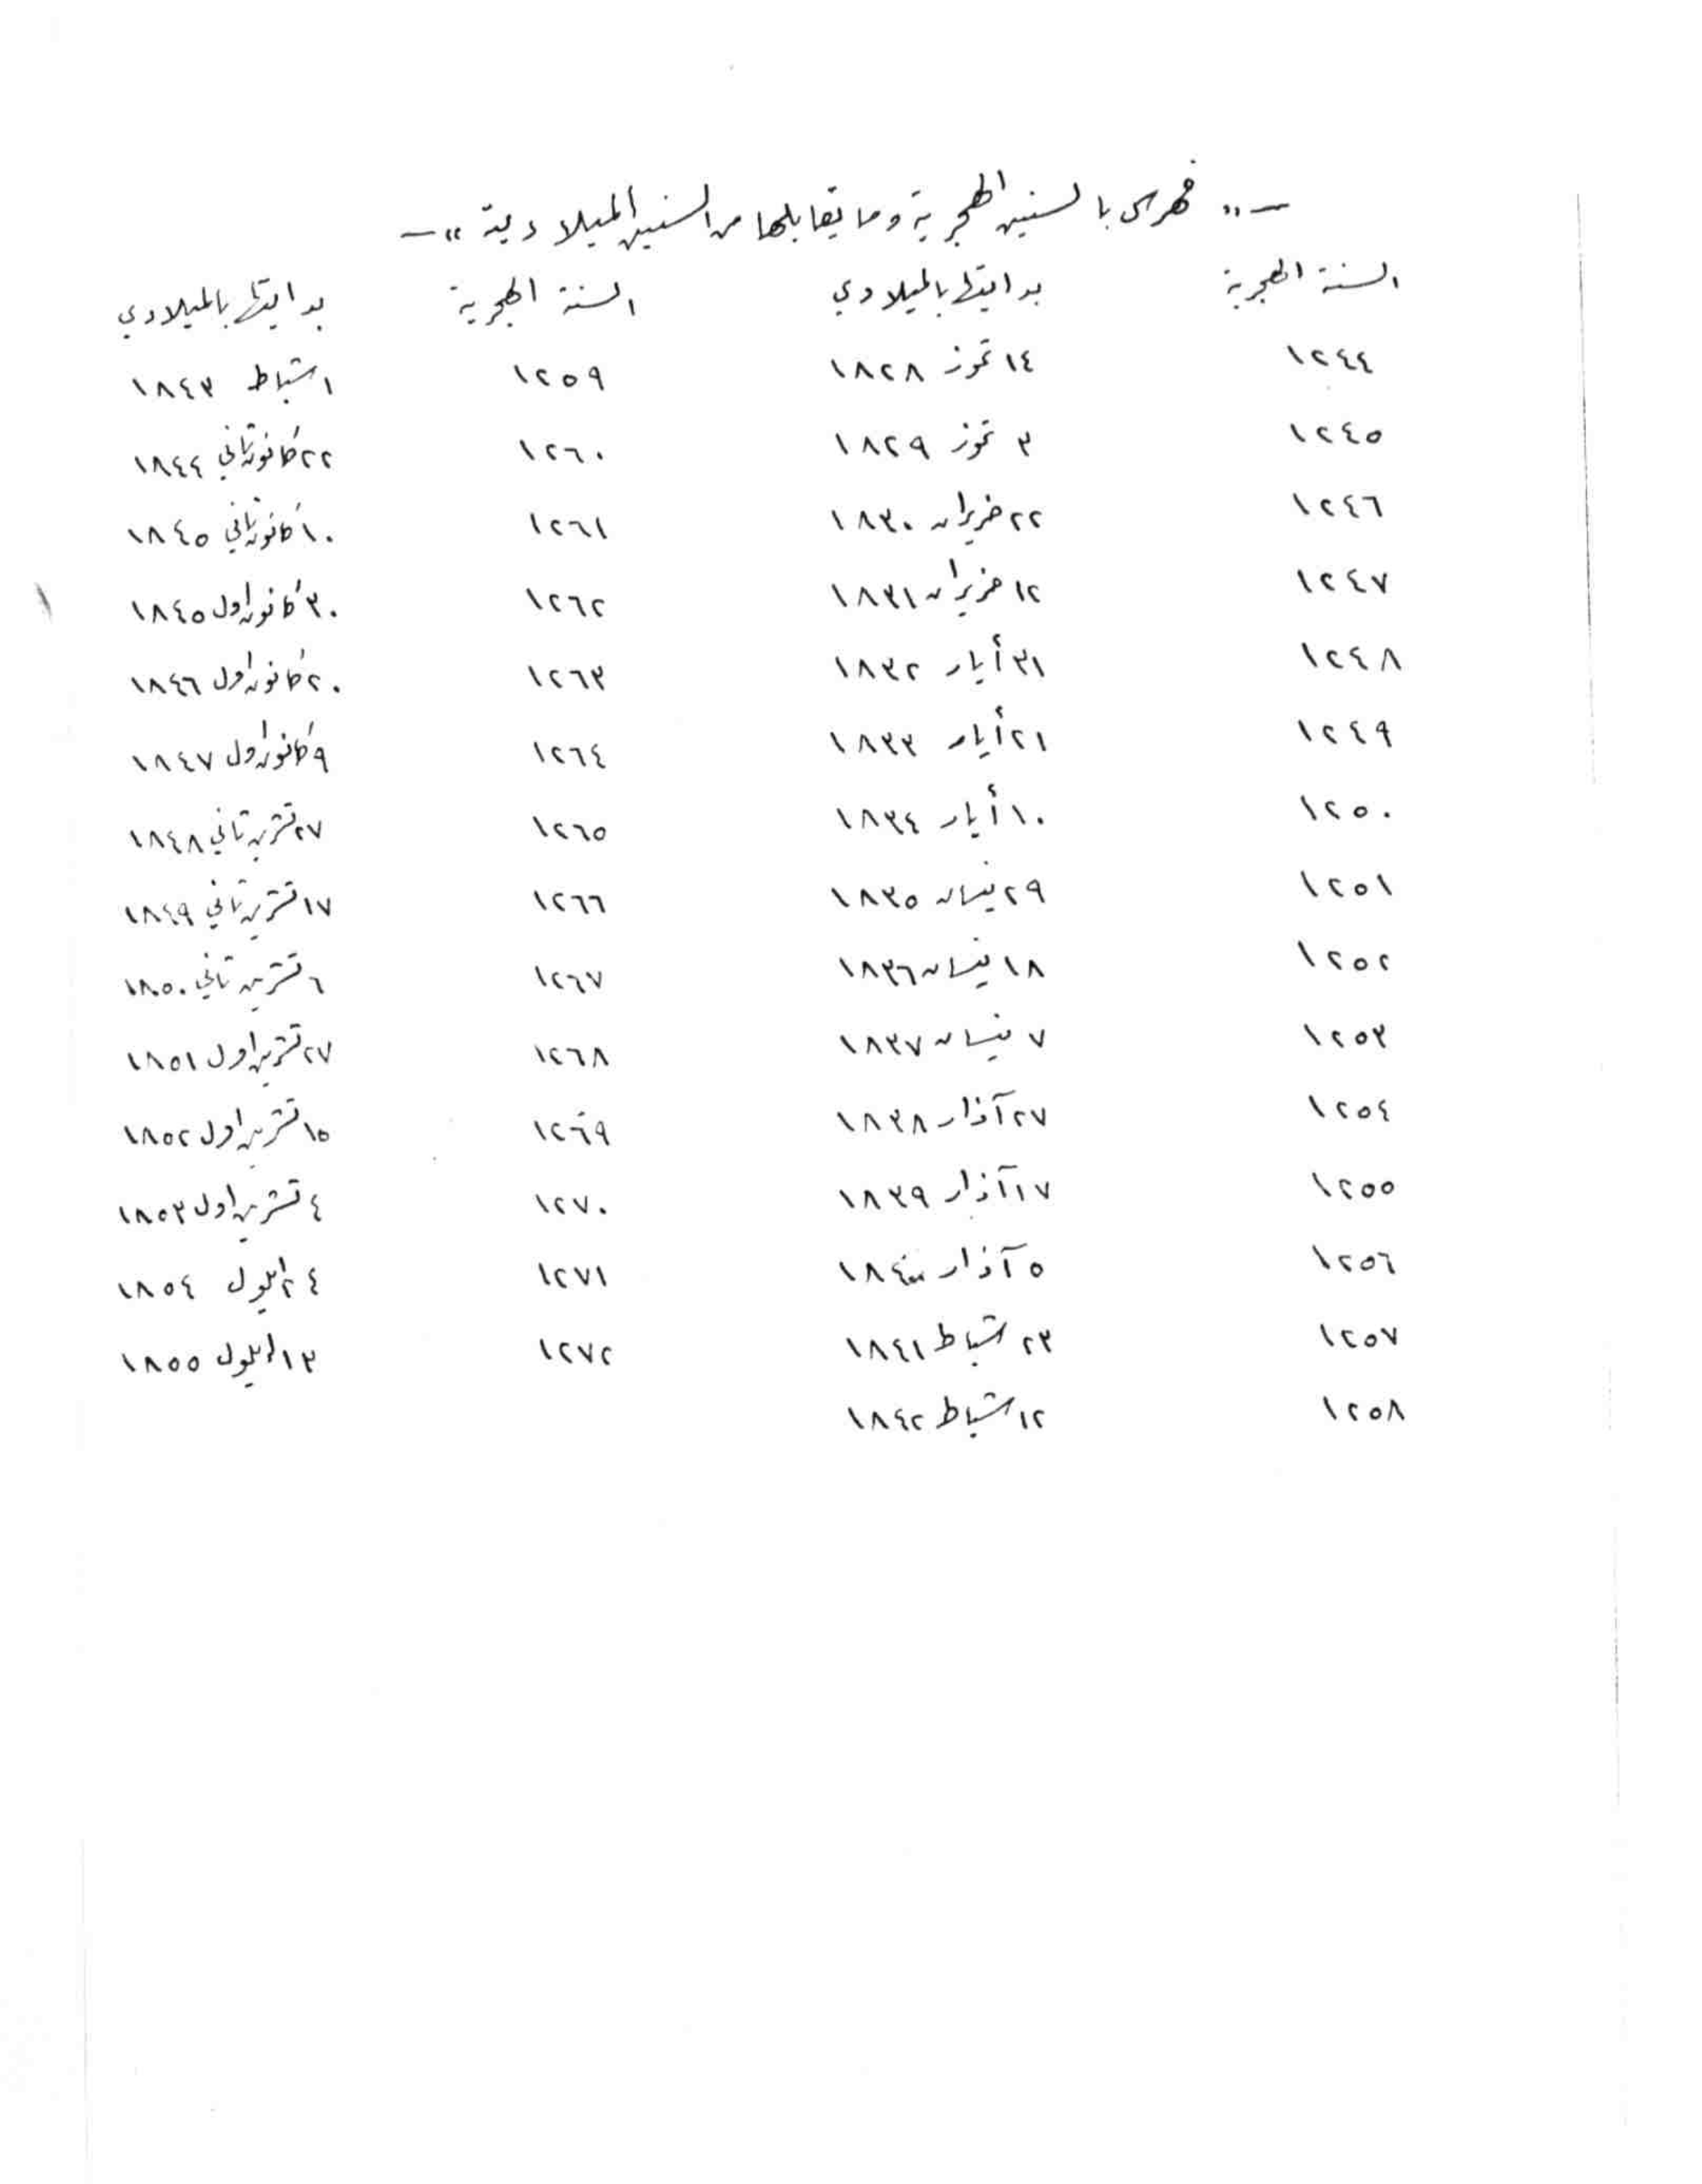 — " فهرس بالسنين الهجرية وما يقابلها من السنين الميلادية " —
السنة الهجرية بدايتها بالميلادي السنة الهجرية بدايتها بالميلادي
١٢٤٤ ١٤ تموز ١٨٢٨ ١٢٥٩ ١ شباط ١٨٤٣
١٢٤٥ ٣ تموز ١٨٢٩ ١٢٦٠ ٢٢ كانون ثاني ١٨٤٤
١٢٤٦ ٢٢ حزيران ١٨٣٠ ١٢٦١ ١٠ كانون ثاني ١٨٤٥
١٢٤٧ ١٢ حزيران ١٨٣١ ١٢٦٢ ٣٠ كانون اول ١٨٤٥
١٢٤٨ ٣١ أيار ١٨٣٢ ١٢٦٣ ٢٠ كانون اول ١٨٤٦
١٢٤٩ ٢١ أيار ١٨٣٣ ١٢٦٤ ٩ كانون اول ١٨٤٧
١٢٥٠ ١٠ أيار ١٨٣٤ ١٢٦٥ ٢٧ تشرين ثاني ١٨٤٨
١٢٥١ ٢٩ نيسان ١٨٣٥ ١٢٦٦ ١٧ تشرين ثاني ١٨٤٩
١٢٥٢ ١٨ نيسان ١٨٣٦ ١٢٦٧ ٦ تشرين ثاني ١٨٥٠
١٢٥٣ ٧ نيسان ١٨٣٧ ١٢٦٨ ٢٧ تشرين اول ١٨٥١
١٢٥٤ ٢٧ آذار ١٨٣٨ ١٢٦٩ ١٥ تشرين اول ١٨٥٢
١٢٥٥ ١٧ آذار ١٨٣٩ ١٢٧٠ ٤ تشرين اول ١٨٥٣
١٢٥٦ ٥ آذار ١٨٤٠ ١٢٧١ ٢٤ ايلول ١٨٥٤
١٢٥٧ ٢٣ شباط ١٨٤١ ١٢٧٢ ١٣ ايلول ١٨٥٥
١٢٥٨ ١٢ شباط ١٨٤٢